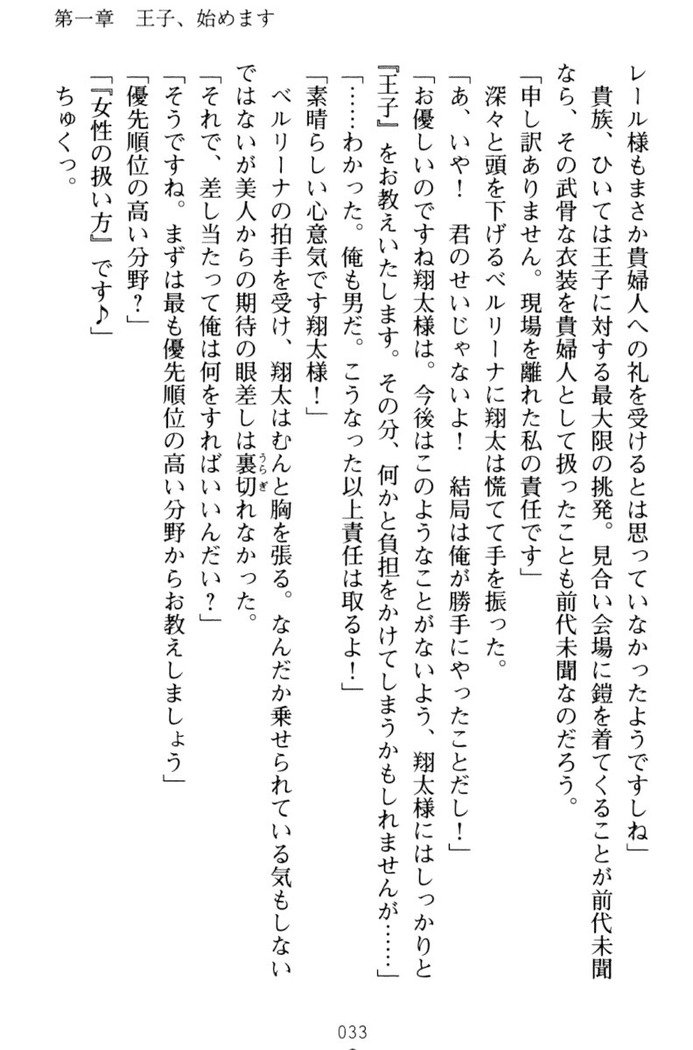 第一章　王子、始めます
レール様もまさか貴婦人への礼を受けるとは思っていなかったようですしね」
　貴族、ひいては王子に対する最大限の挑発。見合い会場に鎧を着てくることが前代未聞
なら、その武骨な衣装を貴婦人として扱ったことも前代未聞なのだろう。
「申し訳ありません。現場を離れた私の責任です」
　深々と頭を下げるベルリーナに翔太は慌てて手を振った。
「あ、いや！　君のせいじゃないよ！　結局は俺が勝手にやったことだし！」
「お優しいのですね翔太様は。今後はこのようなことがないよう、翔太様にはしっかりと
『王子』をお教えいたします。その分、何かと負担をかけてしまうかもしれませんが……」
「……わかった。俺も男だ。こうなった以上責任は取るよ！」
「素晴らしい心意気です翔太様！」
　ベルリーナの拍手を受け、翔太はむんと胸を張る。なんだか乗せられている気もしない
ではないが美人からの期待の眼差しは裏切れなかった。
うらぎ
「それで、差し当たって俺は何をすればいいんだい？」
「そうですね。まずは最も優先順位の高い分野からお教えしましょう」
「優先順位の高い分野？」
「『女性の扱い方』です♪」
　ちゅくっ。
033